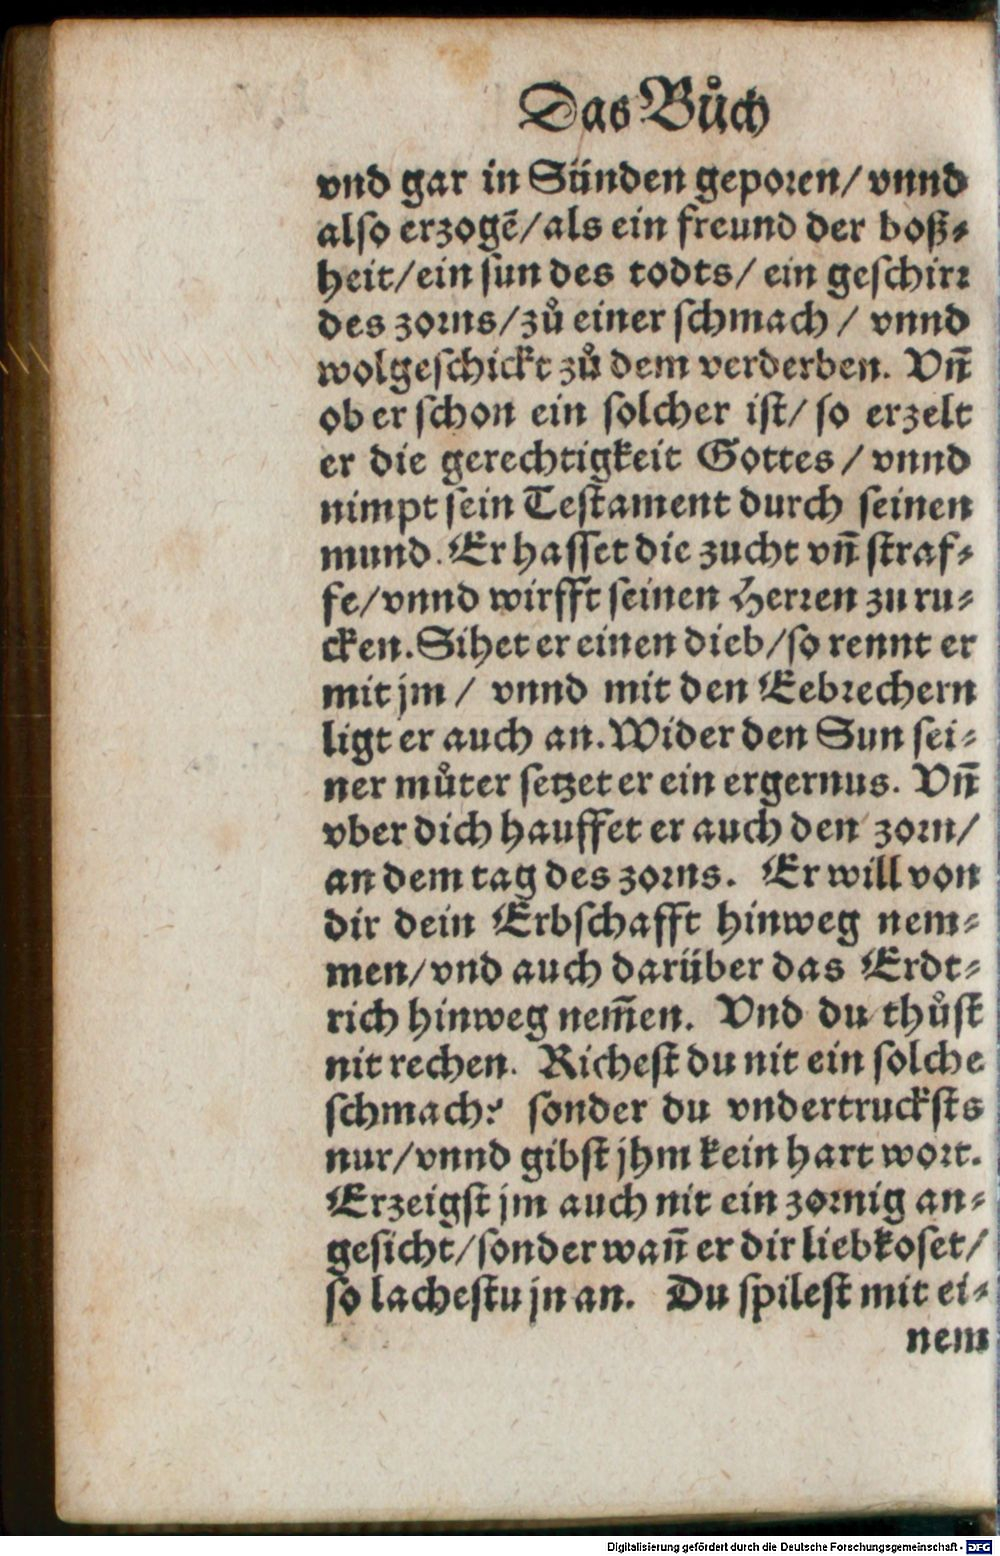 Das Bůch
vnd gar in Sünden geporen/ vnnd
also erzogẽ/als ein freund der boß⸗
heit/ein sun des todts/ ein geschirr
des zorns/zů einer schmach / vnnd
wolgeschickt zů dem verderben. Vñ
ob er schon ein solcher ist/ so erzelt
er die gerechtigkeit Gottes / vnnd
nimpt sein Testament durch seinen
mund. Er hasset die zucht vñ straf⸗
fe/vnnd wirfft seinen Herren zu ru⸗
cken. Sihet er einen dieb/so rennt er
mit jm / vnnd mit den Eebrechern
ligt er auch an. Wider den Sun sei⸗
ner můter setzet er ein ergernus. Vñ
vber dich hauffet er auch den zorn/
an dem tag des zorns. Er will von
dir dein Erbschafft hinweg nem⸗
men/vnd auch darüber das Erdt⸗
rich hinweg nem̃en. Vnd du thůst
nit rechen. Richest du nit ein solche
schmach? sonder du vndertruckſts
nur/vnnd gibst jhm kein hart wort.
Erzeigst jm auch nit ein zornig an⸗
gesicht/sonder wañ er dir liebkoset/
so lachestu jn an. Du spilest mit ei⸗
nem
Digitalisierung gefördert durch die Deutsche Forschungsgemeinschaft - DFG